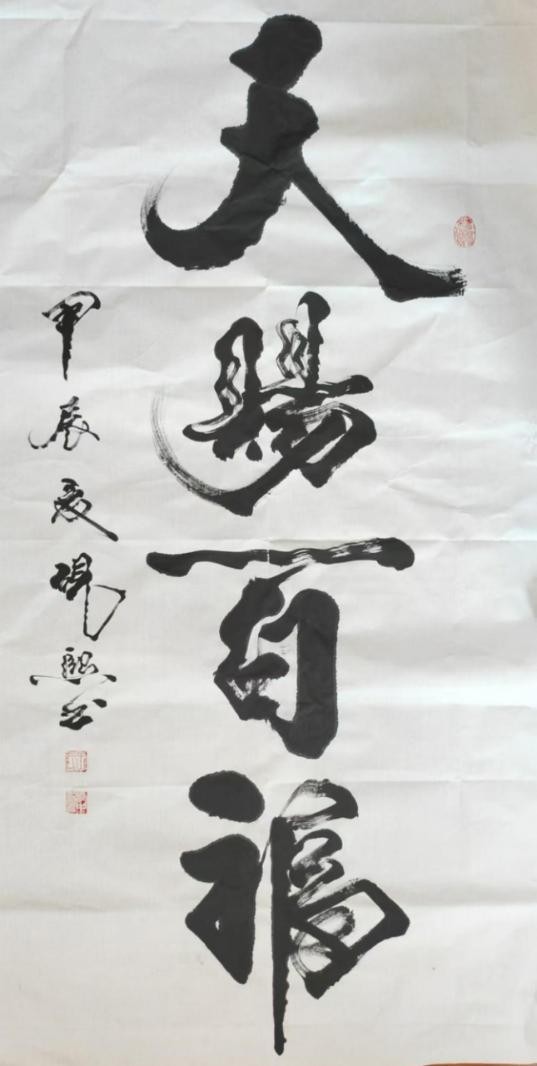 天賜百福
甲辰夏 書